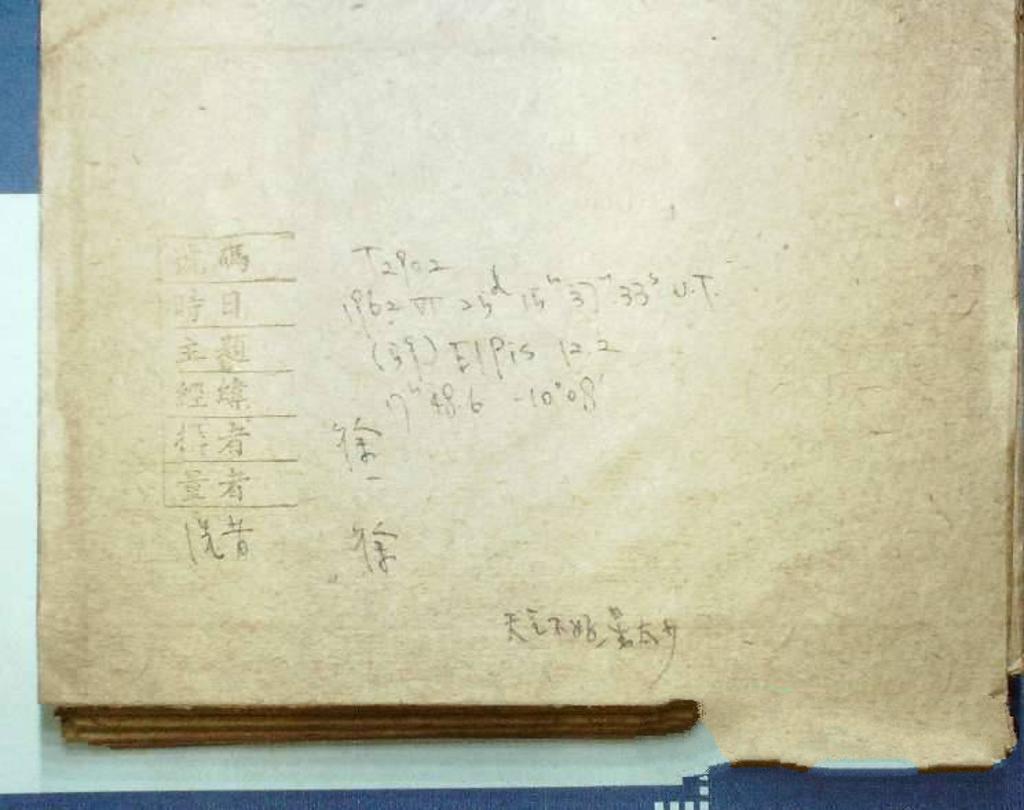 號碼 T2902
時日 1962 VI 25d 15h 37m 33s U.T.
主題 (59) Elpis 12.2
經緯 17h 48.6 -10°08'
者 徐
量者
洗者 徐
天 不好